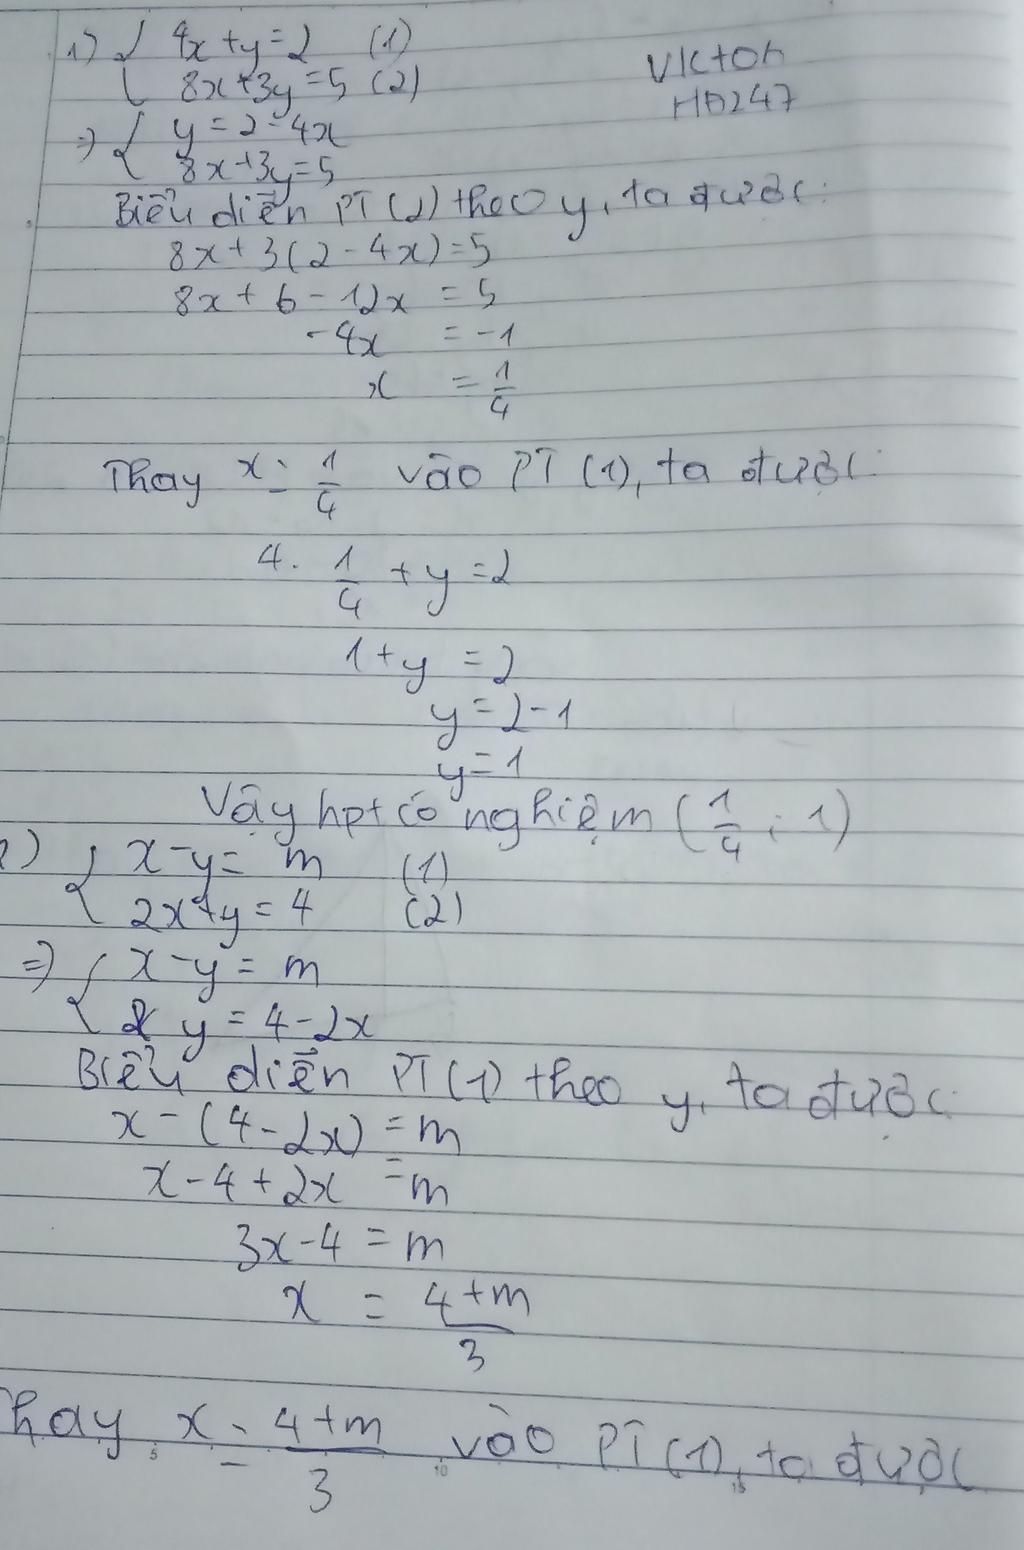 1) { 4x + y = 2 (1)
8x + 3y = 5 (2)
Victoh
HD247
=> { y = 2 - 4x
8x + 3y = 5
Biểu diễn PT (2) theo y, ta được:
8x + 3(2 - 4x) = 5
8x + 6 - 12x = 5
-4x = -1
x = 1/4
Thay x = 1/4 vào PT (1), ta được:
4. 1/4 + y = 2
1 + y = 2
y = 2 - 1
y = 1
Vậy hpt có nghiệm (1/4 ; 1)
2) { x - y = m (1)
2x + y = 4 (2)
=> { x - y = m
y = 4 - 2x
Biểu diễn PT (1) theo y, ta được:
x - (4 - 2x) = m
x - 4 + 2x = m
3x - 4 = m
x = 4 + m / 3
Thay x = 4 + m / 3 vào PT (1), ta được
5 10 15